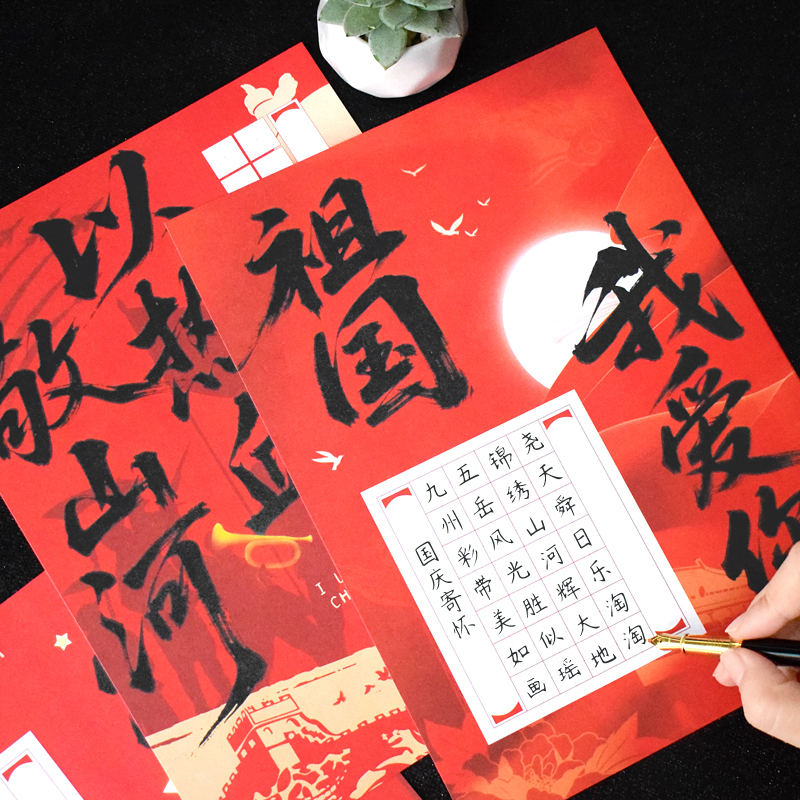 以热血
敬山河
祖国
我爱你
尧天舜日乐淘淘
锦绣山河辉大地
五岳风光胜似瑶
九州彩带美如画
国庆寄怀